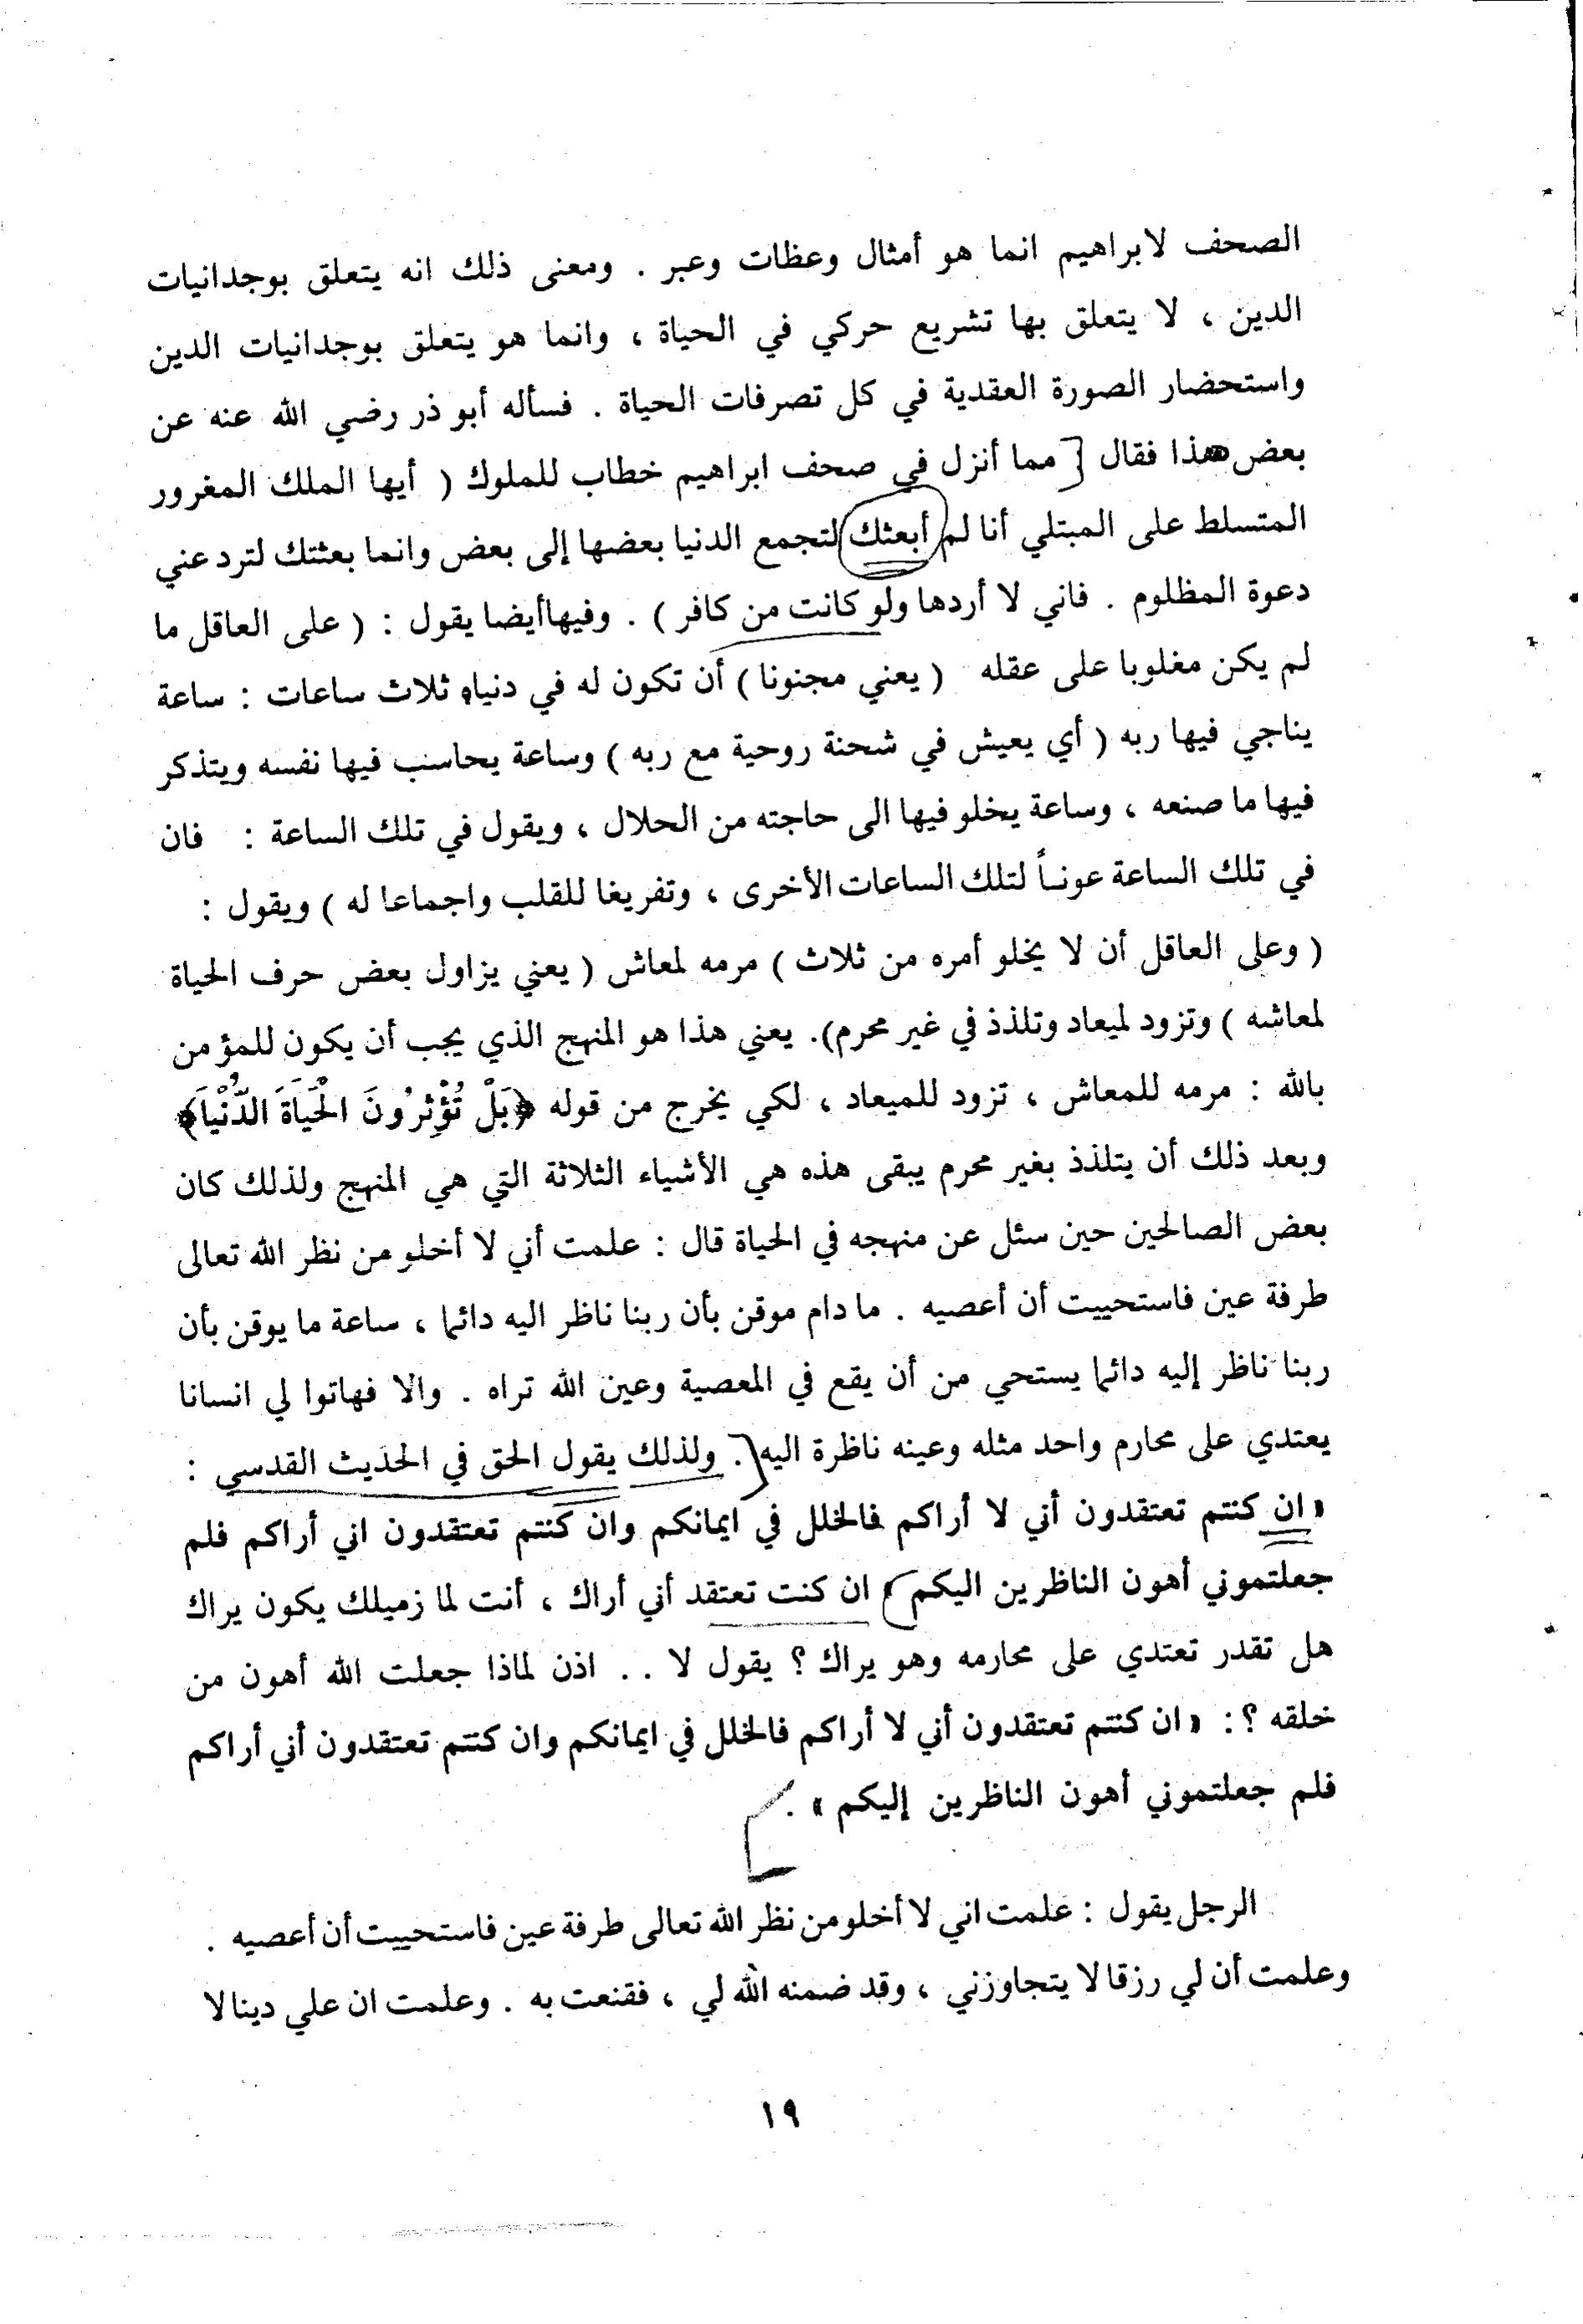 الصحف لابراهيم انما هو أمثال وعظات وعبر . ومعنى ذلك انه يتعلق بوجدانيات
الدين ، لا يتعلق بها تشريع حركي في الحياة ، وانما هو يتعلق بوجدانيات الدين
واستحضار الصورة العقدية في كل تصرفات الحياة . فسأله أبو ذر رضي الله عنه عن
بعض هذا فقال [ مما أنزل في صحف ابراهيم خطاب للملوك ( أيها الملك المغرور
المتسلط على المبتلي أنا لم أبعثك لتجمع الدنيا بعضها إلى بعض وانما بعثتك لترد عني
دعوة المظلوم . فاني لا أردها ولو كانت من كافر ) . وفيها أيضا يقول : ( على العاقل ما
لم يكن مغلوبا على عقله ( يعني مجنونا ) أن تكون له في دنياه ثلاث ساعات : ساعة
يناجي فيها ربه ( أي يعيش في شحنة روحية مع ربه ) وساعة يحاسب فيها نفسه ويتذكر
فيها ما صنعه ، وساعة يخلو فيها الى حاجته من الحلال ، ويقول في تلك الساعة : فان
في تلك الساعة عونـاً لتلك الساعات الأخرى ، وتفريغا للقلب واجماعا له ) ويقول :
( وعلى العاقل أن لا يخلو أمره من ثلاث ) مرمه لمعاش ( يعني يزاول بعض حرف الحياة
لمعاشه ) وتزود لميعاد وتلذذ في غير محرم). يعني هذا هو المنهج الذي يجب أن يكون للمؤمن
بالله : مرمه للمعاش ، تزود للميعاد ، لكي يخرج من قوله ﴿بَلْ تُؤْثِرُونَ الْحَيَاةَ الدُّنْيَا﴾
وبعد ذلك أن يتلذذ بغير محرم يبقى هذه هي الأشياء الثلاثة التي هي المنهج ولذلك كان
بعض الصالحين حين سئل عن منهجه في الحياة قال : علمت أني لا أخلو من نظر الله تعالى
طرفة عين فاستحييت أن أعصيه . ما دام موقن بأن ربنا ناظر اليه دائما ، ساعة ما يوقن بأن
ربنا ناظر إليه دائما يستحي من أن يقع في المعصية وعين الله تراه . والا فهاتوا لي انسانا
يعتدي على محارم واحد مثله وعينه ناظرة اليه . ولذلك يقول الحق في الحديث القدسي :
« ان كنتم تعتقدون أني لا أراكم فالخلل في ايمانكم وان كنتم تعتقدون اني أراكم فلم
جعلتموني أهون الناظرين اليكم » ان كنت تعتقد أني أراك ، أنت لما زميلك يكون يراك
هل تقدر تعتدي على محارمه وهو يراك ؟ يقول لا . . اذن لماذا جعلت الله أهون من
خلقه ؟ : « ان كنتم تعتقدون أني لا أراكم فالخلل في ايمانكم وان كنتم تعتقدون أني أراكم
فلم جعلتموني أهون الناظرين إليكم » .
الرجل يقول : علمت اني لا أخلو من نظر الله تعالى طرفة عين فاستحييت أن أعصيه .
وعلمت أن لي رزقا لا يتجاوزني ، وقد ضمنه الله لي ، فقنعت به . وعلمت ان علي دينا لا
١٩